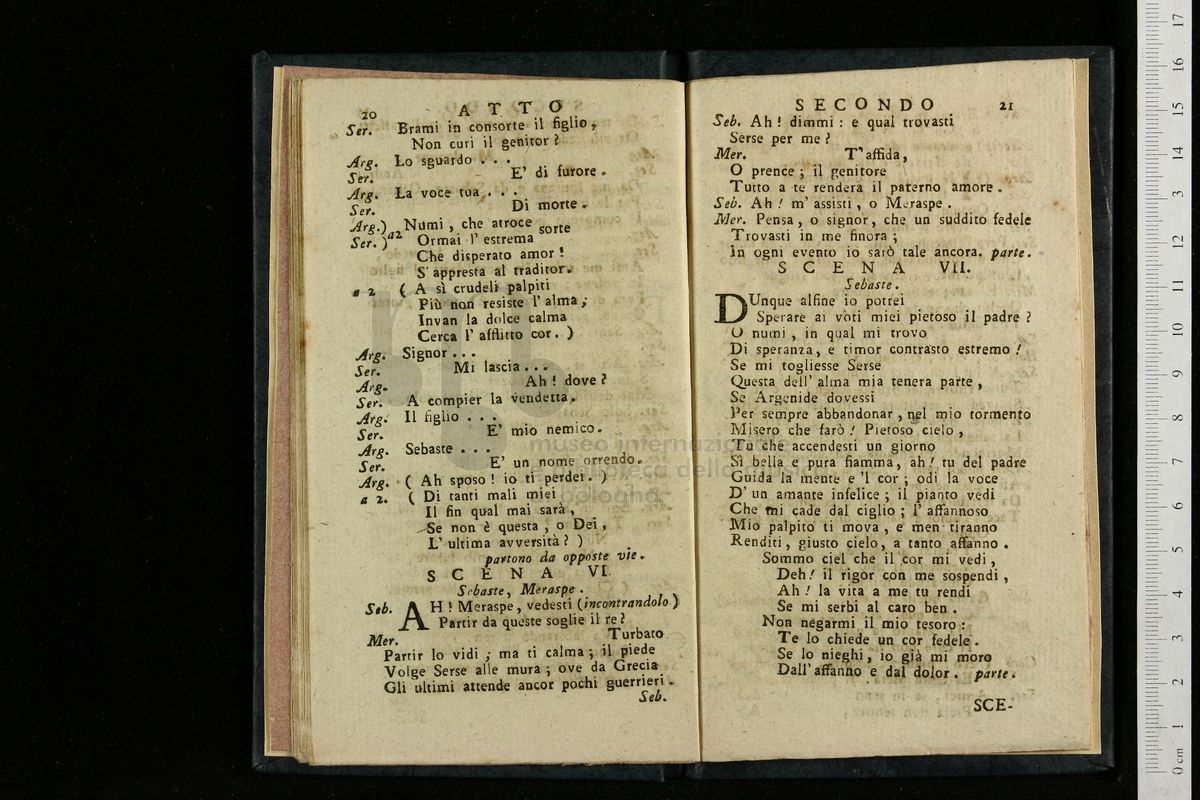 20 ATTO
Ser. Brami in consorte il figlio,
Non curi il genitor?
Arg. Lo sguardo . . .
Ser. E' di furore.
Arg. La voce tua . . .
Ser. Di morte.
Arg.) a2 Numi, che atroce sorte
Ser. ) Ormai l' estrema
Che disperato amor!
S' appresta al traditor.
a 2 ( A sì crudeli palpiti
Più non resiste l' alma,
Invan la dolce calma
Cerca l' afflitto cor. )
Arg. Signor . . .
Ser. Mi lascia . . .
Arg. Ah! dove?
Ser. A compier la vendetta.
Arg. Il figlio . . .
Ser. E' mio nemico.
Arg. Sebaste . . .
Ser. E' un nome orrendo.
Arg. ( Ah sposo! io ti perdei. )
a 2. ( Di tanti mali miei
Il fin qual mai sarà,
Se non è questa, o Dei,
L' ultima avversità? )
partono da opposte vie.
SCENA VI.
Sebaste, Meraspe.
Seb. AH! Meraspe, vedesti (incontrandolo)
Partir da queste soglie il re?
Mer. Turbato
Partir lo vidi; ma ti calma; il piede
Volge Serse alle mura; ove da Grecia
Gli ultimi attende ancor pochi guerrieri.
Seb.
SECONDO 21
Seb. Ah! dimmi: e qual trovasti
Serse per me?
Mer. T' affida,
O prence; il genitore
Tutto a te renderà il paterno amore.
Seb. Ah! m' assisti, o Meraspe.
Mer. Pensa, o signor, che un suddito fedele
Trovasti in me finora;
In ogni evento io sarò tale ancora. parte.
SCENA VII.
Sebaste.
DUnque alfine io potrei
Sperare ai voti miei pietoso il padre?
O numi, in qual mi trovo
Di speranza, e timor contrasto estremo!
Se mi togliesse Serse
Questa dell' alma mia tenera parte,
Se Argenide dovessi
Per sempre abbandonar, nel mio tormento
Misero che farò! Pietoso cielo,
Tu che accendesti un giorno
Sì bella e pura fiamma, ah! tu del padre
Guida la mente e 'l cor; odi la voce
D' un amante infelice; il pianto vedi
Che mi cade dal ciglio; l' affannoso
Mio palpito ti mova, e men tiranno
Renditi, giusto cielo, a tanto affanno.
Sommo ciel che il cor mi vedi,
Deh! il rigor con me sospendi,
Ah! la vita a me tu rendi
Se mi serbi al caro ben.
Non negarmi il mio tesoro:
Te lo chiede un cor fedele.
Se lo nieghi, io già mi moro
Dall' affanno e dal dolor. parte.
SCE-
museo internazionale
biblioteca della musica
bologna
0 cm 1 2 3 4 5 6 7 8 9 10 11 12 13 14 15 16 17